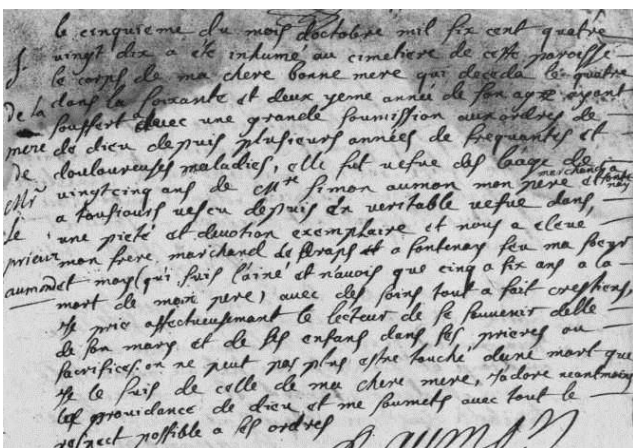 le cinquieme du mois doctobre mil six cent quatre
vingt dix a été inhumé au cimetiere de cette paroisse
le corps de ma chere bonne mere qui deceda le quatre
dans la soixante et deux yeme année de son age ayant
souffert avec une grande soumission aux ordres de
de dieu depuis plusieurs années de frequantes et
douloureuses maladies, elle fut vefve des laage de
vingtcinq ans de Mre Simon aumon mon pere et marchand a fontenay
a tousiours vescu depuis en veritable vefve dans
une pieté et devotion exemplaire et nous a eleve
mon frere marchand de draps et a fontenay feu ma soeur
et moy (qui suis l'ainé et n'avois que cinq a six ans a la
mort de mon pere) avec des soins tout a fait crestiens,
je prie affectueusemant le lecteur de se souvenir delle
de son mary et de ses enfans dans ses prieres ou
sacrifices. on ne peut pas plus estre touché dune mort que
je le suis de celle de ma chere mere, j'adore neantmoins
la providance de dieu et me soumets avec tout le
respect possible a ses ordres
aumon
S.
De la
mere
de
Mr
le
prieur
aumon